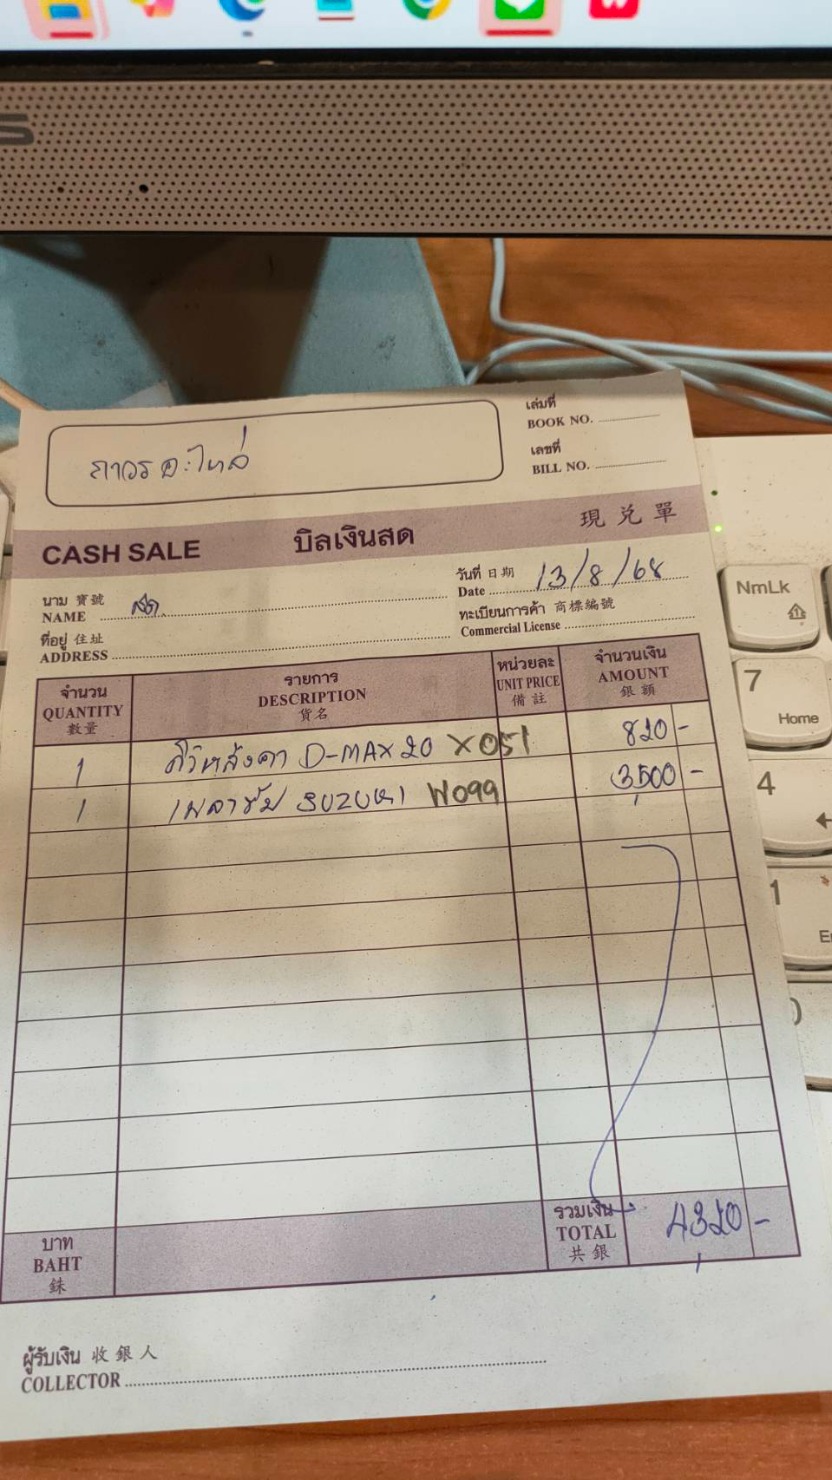 S
ถาวรอะไหล่
เล่มที่
BOOK NO.
เลขที่
BILL NO.
CASH SALE บิลเงินสด 現兌單
นาม 寶號
NAME สด
วันที่ 日期
Date 13/8/68
ที่อยู่ 住址
ADDRESS
ทะเบียนการค้า 商標編號
Commercial License
จำนวน
QUANTITY
數量
รายการ
DESCRIPTION
貨名
หน่วยละ
UNIT PRICE
備註
จำนวนเงิน
AMOUNT
銀額
1 คิ้วหลังคา D-MAX 20 X051 820 -
1 เพลาขับ SUZUKI W099 3,500 -
บาท
BAHT
銖
รวมเงิน
TOTAL
共銀
4,320 -
ผู้รับเงิน 收銀人
COLLECTOR
NmLk
7
Home
4
1
0